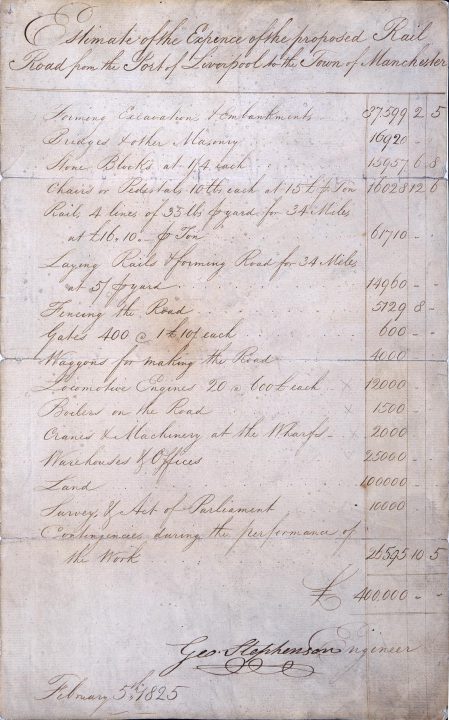 Estimate of the Expence of the proposed Rail
Road from the Port of Liverpool to the Town of Manchester
Forming Excavation & Embankments 87599 2 5
Bridges & other Masonry 16920 - -
Stone Blocks at 1/4 each 15957 6 8
Chairs or Pedestals 10 lb each at 15 £ ⅌ Ton 16028 12 6
Rails 4 lines of 35 lbs ⅌ yard for 34 Miles
at £16.10. - ⅌ Ton 61710 - -
Laying Rails & forming Road for 34 Miles
at 5/ ⅌ yard 14960 - -
Fencing the Road 5129 8 -
Gates 400 @ 1£ 10/ each 600 - -
Waggons for making the Road 4000 - -
Locomotive Engines 20 @ 600£ each x 12000 - -
Boilers on the Road x 1500 - -
Cranes & Machinery at the Wharfs - x 2000 - -
Warehouses & Offices 25000 - -
Land 100000 - -
Survey, & Act of Parliament 10000 - -
Contingencies during the performance of
the Work 26595 10 5
£ 400,000 - -
Geo. Stephenson Engineer
February 5th 1825